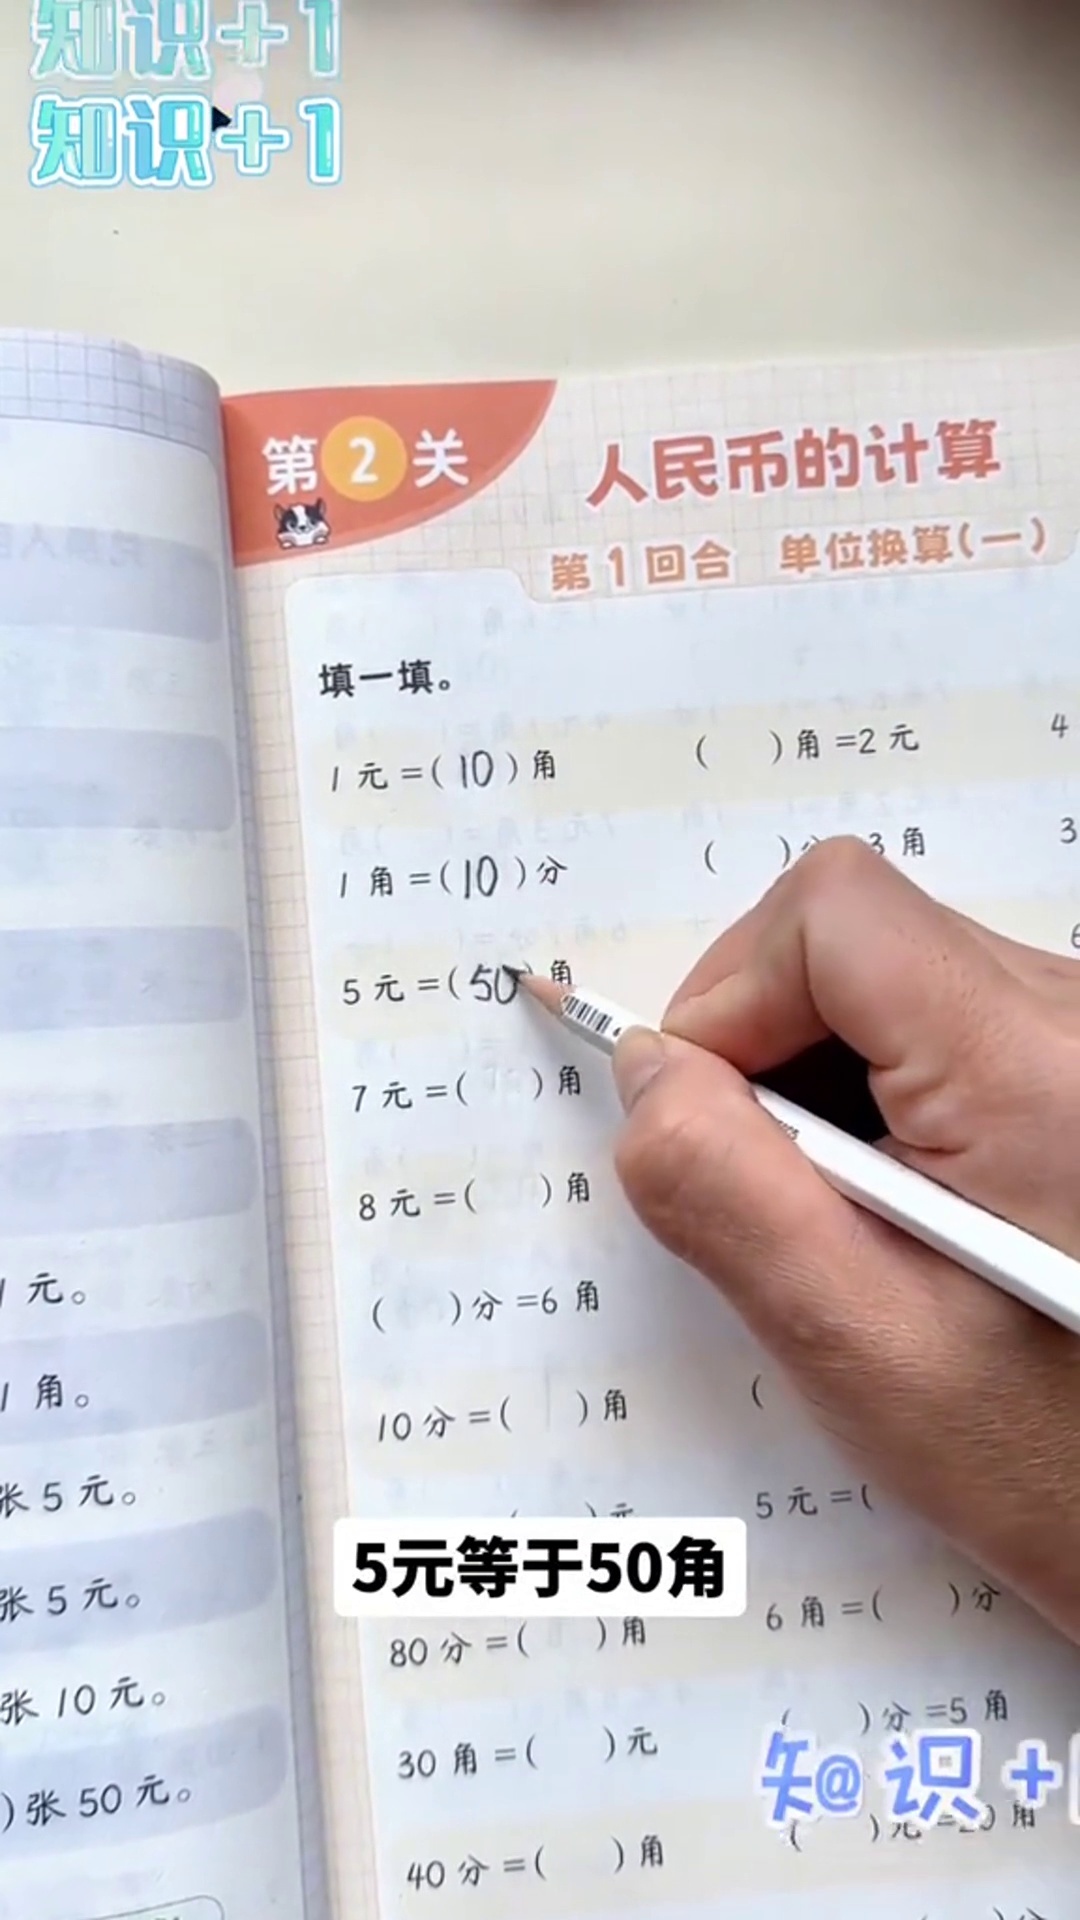 知识+1
知识+1
第2关
人民币的计算
第1回合 单位换算(一)
填一填。
1元=(10)角
( )角=2元
4
1角=(10)分
( )分=3角
3
5元=(50)角
6
7元=( )角
8元=( )角
( )分=6角
10分=( )角
(
( )元
5元=(
5元等于50角
80分=( )角
6角=( )分
30角=( )元
( )分=5角
知@识+1
40分=( )角
( )元=20角
1元。
1角。
张5元。
张5元。
张10元。
)张50元。